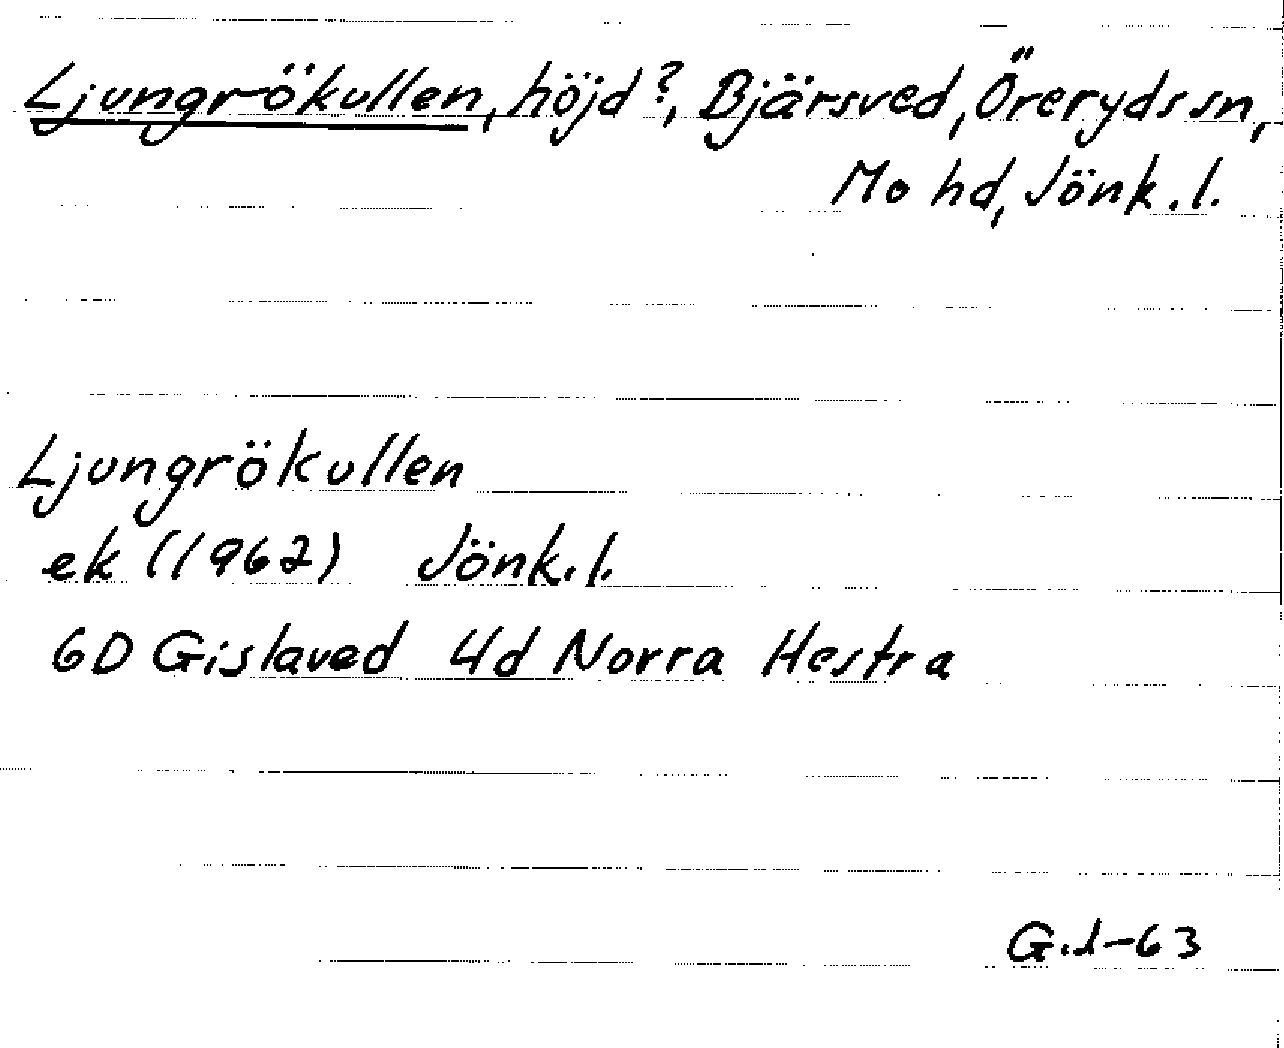 Ljungrökullen, höjd?, Bjärsved, Öreryds sn,
Mo hd, Jönk.l.
Ljungrökullen
ek (1962) Jönk.l.
6D Gislaved 4d Norra Hestra
G.I-63